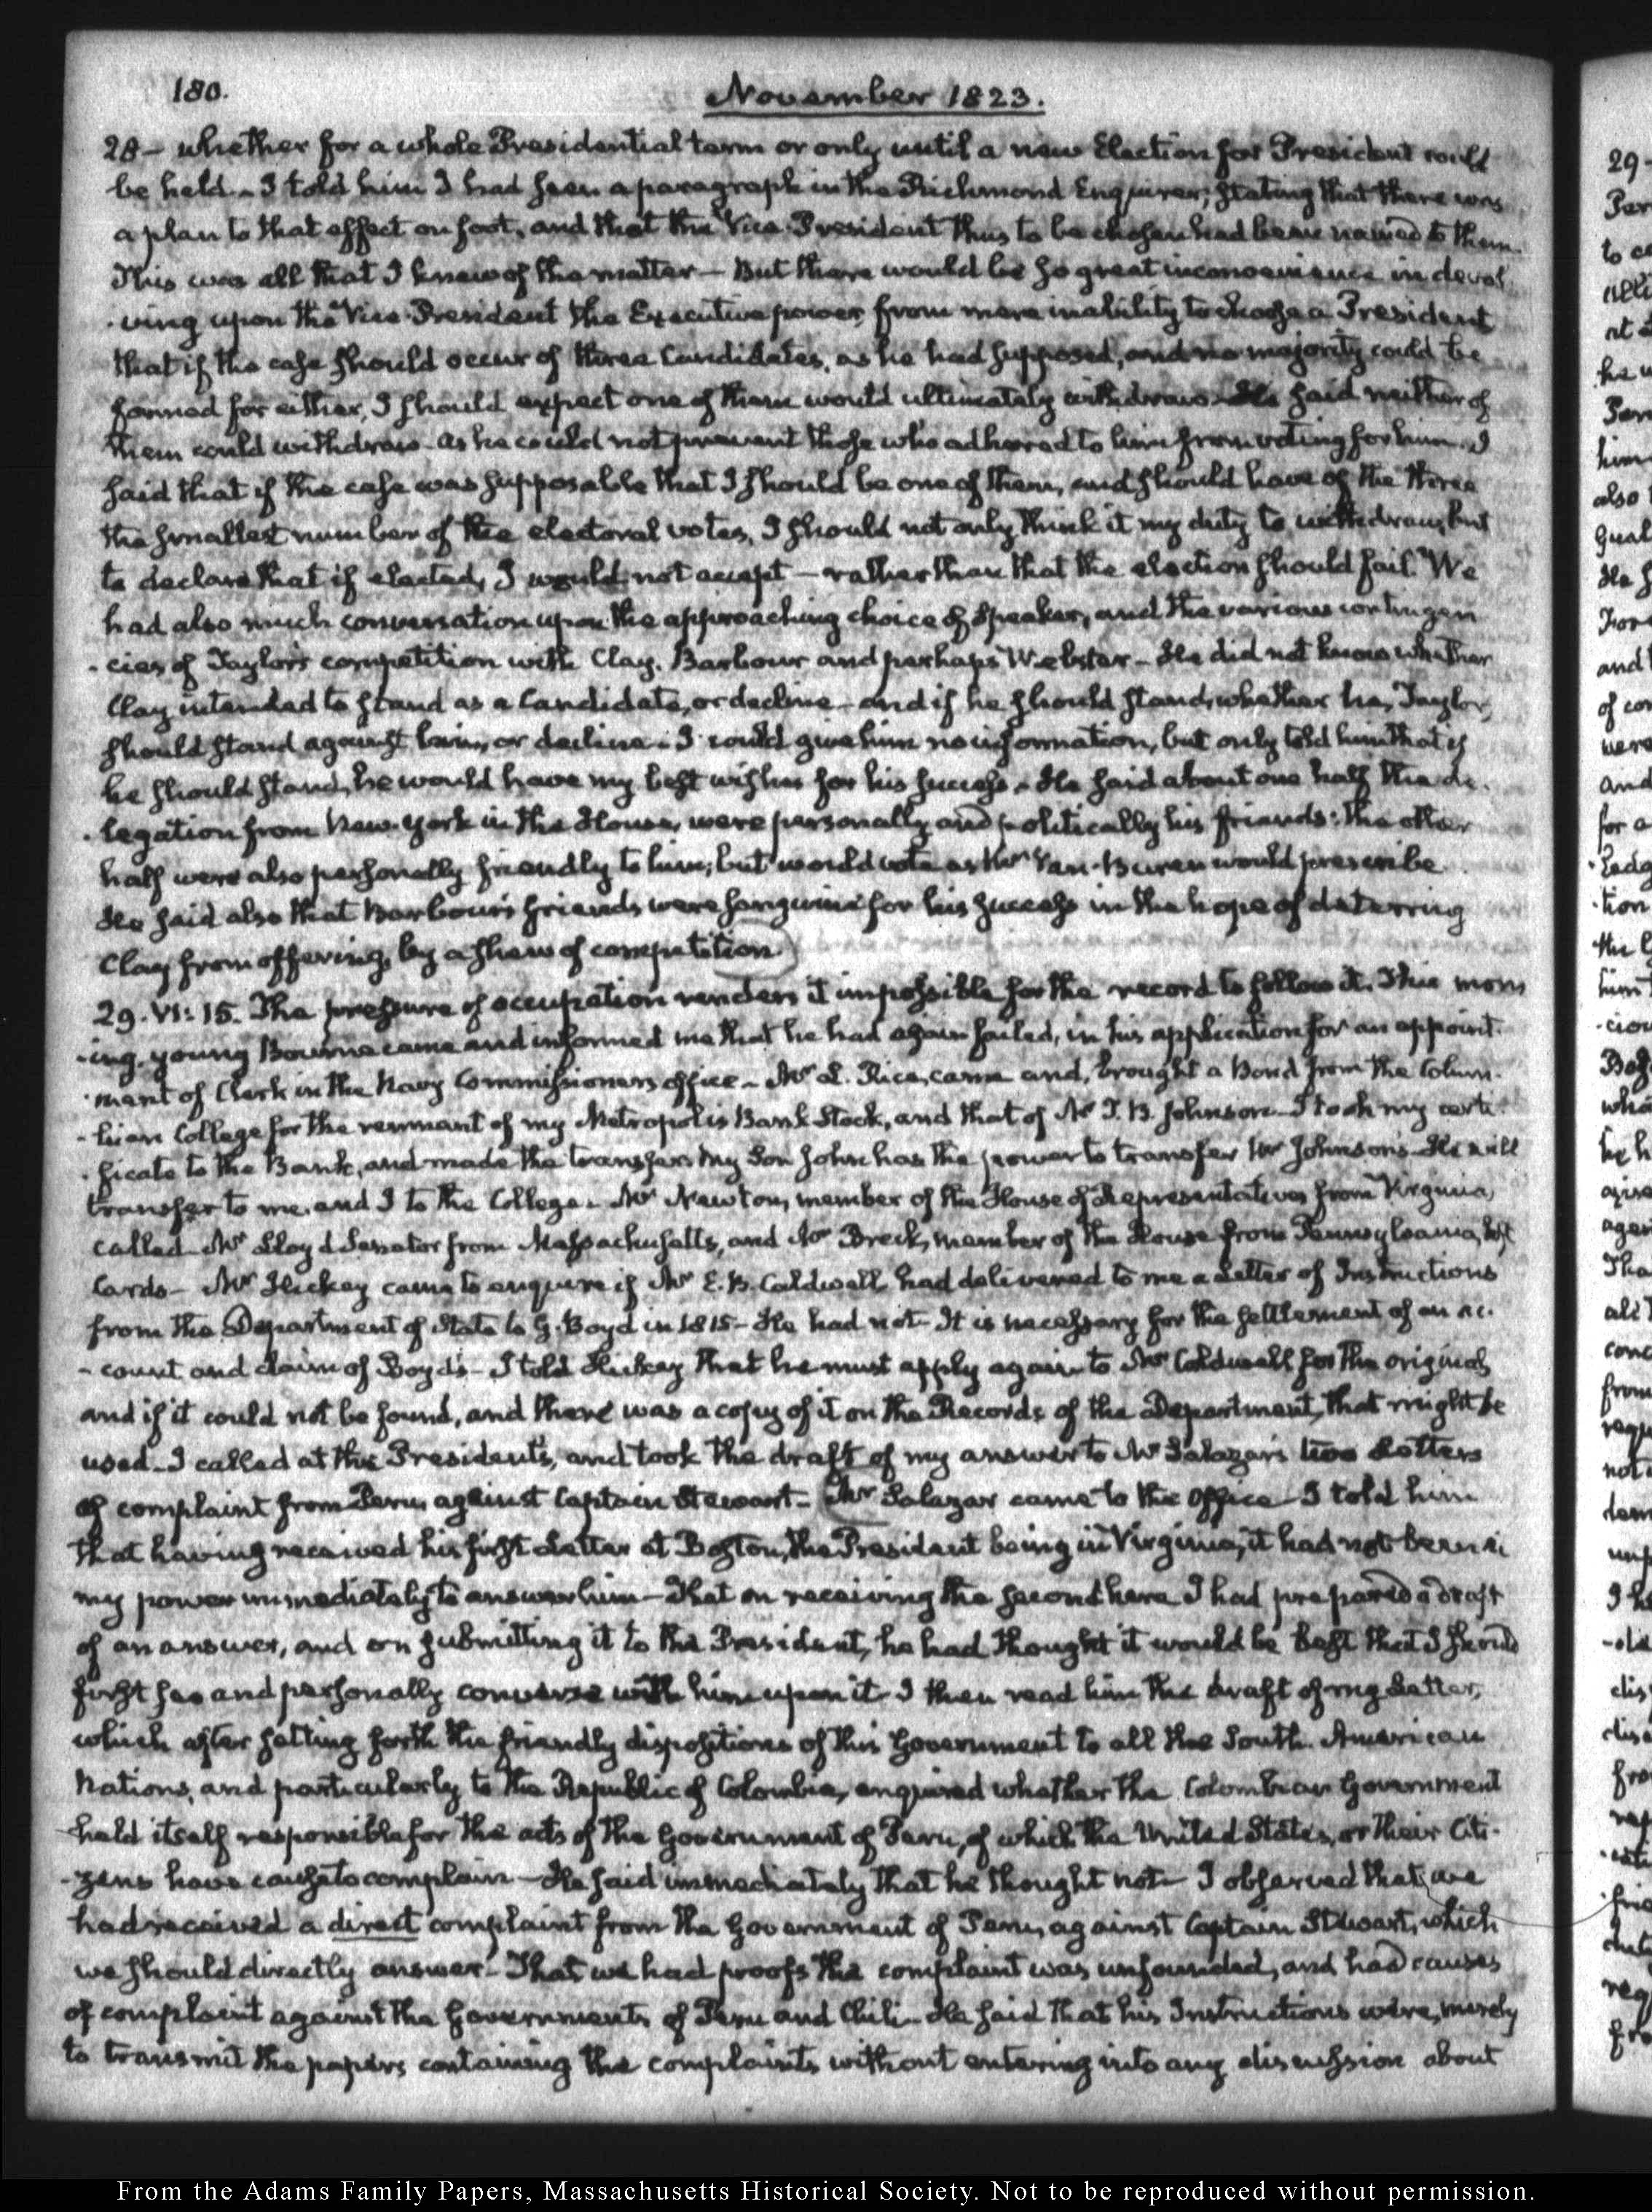 180.
November 1823.
28 - whether for a whole Presidential term or only until a new Election for President could
be held - I told him I had seen a paragraph in the Richmond Enquirer, stating that there was
a plan to that effect on foot, and that the Vice-President thus to be chosen had been named to them
This was all that I knew of the matter - But there would be so great inconvenience in devol
-ving upon the Vice-President the Executive power, from mere inability to choose a President
that if the case should occur of three Candidates, as he had supposed, and no majority could be
formed for either, I should expect one of them would ultimately withdraw - He said neither of
them could withdraw - as he could not prevent those who adhered to him from voting for him. I
said that if the case was supposable that I should be one of them, and should have of the three
the smallest number of the electoral votes, I should not only think it my duty to withdraw, but
to declare that if elected, I would not accept - rather than that the election should fail. We
had also much conversation upon the approaching choice of Speaker, and the various contingen
-cies of Taylor's competition with Clay, Barbour and perhaps Webster - He did not know whether
Clay intended to stand as a Candidate, or decline - and if he should stand, whether he, Taylor,
should stand against him, or decline - I could give him no information, but only told him that if
he should stand, he would have my best wishes for his success - He said about one half the de-
-legation from New-York in the House, were personally and politically his friends: the other
half were also personally friendly to him; but would vote as Mr Van-Buren would prescribe
He said also that Barbour's friends were sanguine for his success in the hope of deterring
Clay from offering, by a shew of competition.
29. VI: 15. The pressure of occupation renders it impossible for the record to follow it. This morn
-ing, young Bourne came and informed me that he had again failed, in his application for an appoint-
-ment of Clerk in the Navy Commissioners office - Mr L. Rice, came and, brought a Bond from the Colum-
-bian College for the remnant of my Metropolis Bank Stock, and that of Mr T. B. Johnson - I took my certi-
-ficate to the Bank, and made the transfer. My Son John has the power to transfer Mr Johnson's - He will
transfer to me, and I to the College - Mr Newton, member of the House of Representatives from Virginia,
called - Mr Lloyd Senator from Massachusetts, and Mr Breck, member of the House from Pennsylvania, left
Cards - Mr Hickey came to enquire if Mr E. B. Caldwell had delivered to me a Letter of Instructions
from the Department of State to G. Boyd in 1815 - He had not - It is necessary for the settlement of an ac-
-count and claim of Boyd's - I told Hickey that he must apply again to Mr Caldwell for the original
and if it could not be found, and there was a copy of it on the Records of the Department, that might be
used - I called at the President's, and took the draft of my answer to Mr Salazar's two Letters
of complaint from Peru, against Captain Stewart - Mr Salazar came to the Office - I told him
that having received his first Letter at Boston, the President being in Virginia, it had not been in
my power immediately to answer him - That on receiving the second here I had prepared a draft
of an answer, and on submitting it to the President, he had thought it would be best that I should
first see and personally converse with him upon it - I then read him the draft of my Letter,
which after setting forth the friendly dispositions of this Government to all the South-American
Nations, and particularly to the Republic of Colombia, enquired whether the Colombian Government
held itself responsible for the acts of the Government of Peru, of which the United States, or their Citi-
-zens have cause to complain - He said immediately that he thought not - I observed that we
had received a direct complaint from the Government of Peru, against Captain Stewart, which
we should directly answer - That we had proofs the complaint was unfounded, and had causes
of complaint against the Governments of Peru and Chili - He said that his Instructions were, merely
to transmit the papers containing the complaints without entering into any discussion about
From the Adams Family Papers, Massachusetts Historical Society. Not to be reproduced without permission.